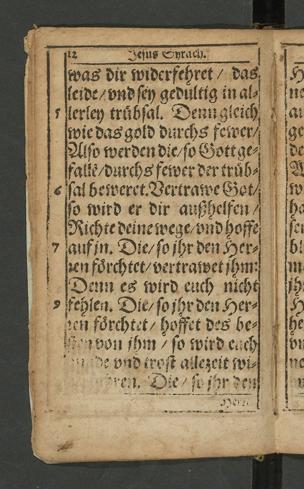 12 Jesus Syrach.
was dir widerfehret / das
leide / vnd sey gedültig in al-
5 lerley trübsal. Denn gleich
wie das gold durchs fewer /
Also werden die / so Gott ge-
fallē / durchs fewer der trüb-
6 sal beweret. Vertrawe Got /
so wird er dir außhelfen /
Richte deine wege / vnd hoffe
7 auf jn. Die / so jhr den Her-
ren förchtet / vertrawet jhm:
Denn es wird euch nicht
9 fehlen. Die / so jhr den Her-
ren förchtet / hoffet des be-
sten von jhm / so wird euch
vnd trost allezeit wi-
Die / so jhr den